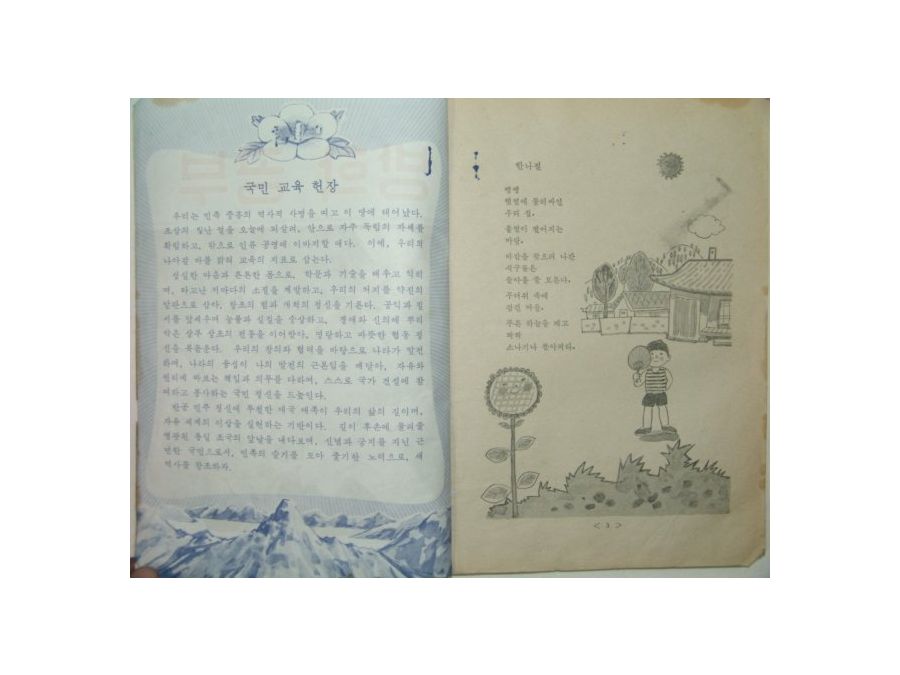 국민 교육 헌장
우리는 민족 중흥의 역사적 사명을 띠고 이 땅에 태어났다.
조상의 빛난 얼을 오늘에 되살려, 안으로 자주 독립의 자세를
확립하고, 밖으로 인류 공영에 이바지할 때다. 이에, 우리의
나아갈 바를 밝혀 교육의 지표로 삼는다.
성실한 마음과 튼튼한 몸으로, 학문과 기술을 배우고 익히
며, 타고난 저마다의 소질을 계발하고, 우리의 처지를 약진의
발판으로 삼아, 창조의 힘과 개척의 정신을 기른다. 공익과 질
서를 앞세우며 능률과 실질을 숭상하고, 경애와 신의에 뿌리
박은 상부 상조의 전통을 이어받아, 명랑하고 따뜻한 협동 정
신을 북돋운다. 우리의 창의와 협력을 바탕으로 나라가 발전
하며, 나라의 융성이 나의 발전의 근본임을 깨달아, 자유와
권리에 따르는 책임과 의무를 다하며, 스스로 국가 건설에 참
여하고 봉사하는 국민 정신을 드높인다.
반공 민주 정신에 투철한 애국 애족이 우리의 삶의 길이며,
자유 세계의 이상을 실현하는 기반이다. 길이 후손에 물려줄
영광된 통일 조국의 앞날을 내다보며, 신념과 긍지를 지닌 근
면한 국민으로서, 민족의 슬기를 모아 줄기찬 노력으로, 새
역사를 창조하자.
한나절
땡땡
땡볕에 둘러싸인
우리 집.
흙벌이 떨어지는
마당.
바람을 찾으러 나간
식구들은
돌아올 줄 모른다.
무더위 속에
걸린 마을.
푸른 하늘을 메고
와락
소나기나 쏟아져라.
< 3 >